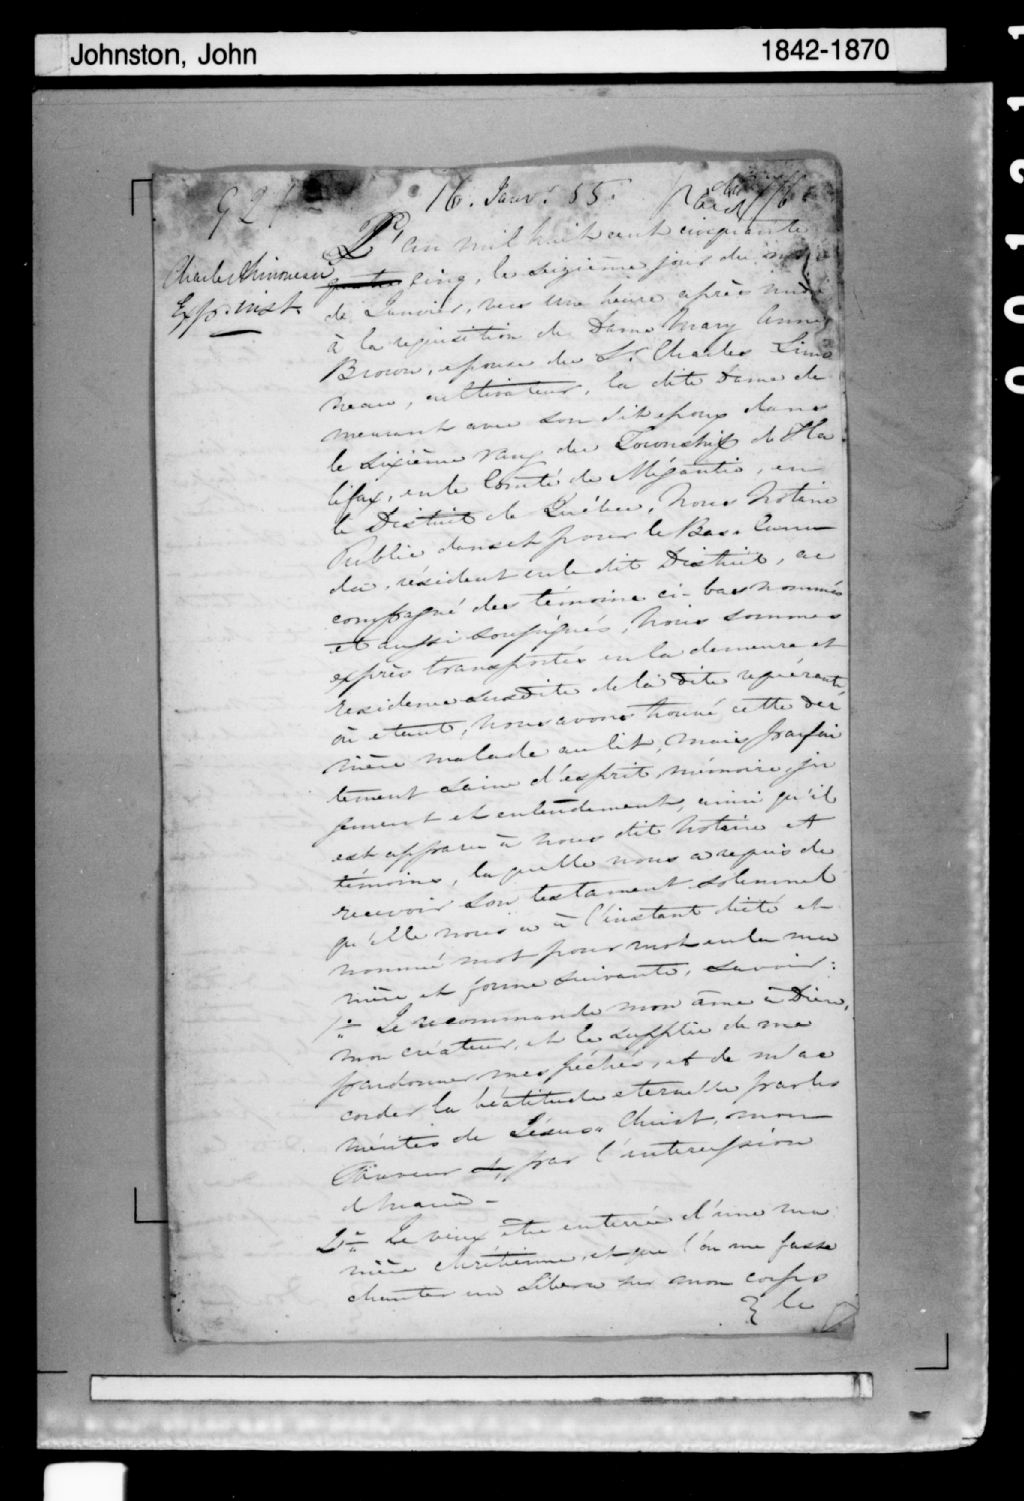 Johnston, John 1842-1870
0 0 1 2 1 1
16. Janv. 55.
L'an mil huit cent cinquante
Charles Simoneau
Exp. inst.
quatre cinq, le seizième jour du mois
de Janvier, vers une heure après midi
à la requisition de Dame Mary Anne
Brown, épouse de Sr. Charles Simo
neau, cultivateur, la dite Dame de
meurant avec son dit époux dans
le sixième rang du Township de Ha
lifax, en le Comté de Mégantic, en
le District de Québec, Nous Notaire
Public dans et pour le Bas-Cana
da, résident en le dit District, ac
compagné des témoins ci-bas nommés
et aussi soussignés, Nous sommes
exprès transportés en la demeure et
residence susdite de la dite requérante
où étant, nous avons trouvé cette der
nière malade au lit, mais parfai
tement saine d'esprit, mémoire, ju
gement et entendement, ainsi qu'il
est apparu à nous dit Notaire et
témoins, laquelle nous a requis de
recevoir son testament solemnel
qu'elle nous a à l'instant dicté et
nommé mot pour mot en la ma
nière et forme suivante, savoir:
1o- Je recommande mon âme à Dieu,
mon créateur, et le supplie de me
pardonner mes péchés, et de m'ac
corder la béatitude eternelle par les
mérites de Jésus-Christ, mon
Sauveur et, par l'intercession
de Marie -
2o- Je veux être enterrée d'une ma
nière chrétienne, et que l'on me fasse
chanter un Libera sur mon corps
le